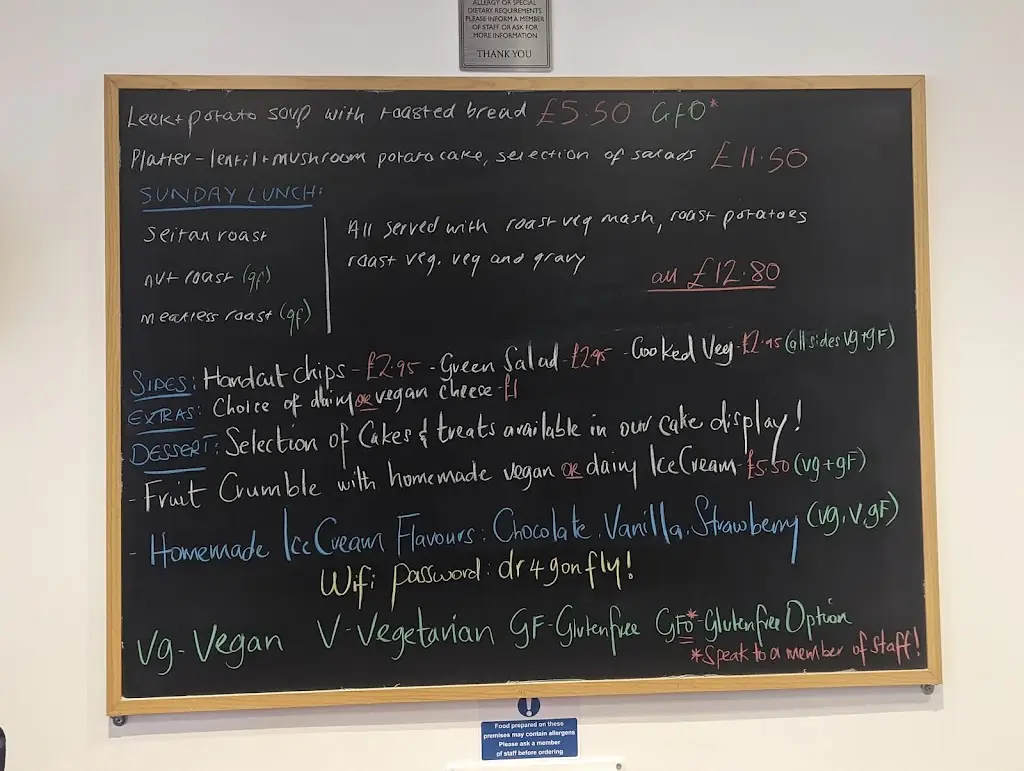 ALLERGY OR SPECIAL
DIETARY REQUIREMENTS
PLEASE INFORM A MEMBER
OF STAFF OR ASK FOR
MORE INFORMATION
THANK YOU
Leek + potato soup with toasted bread £5.50 GFO*
Platter - lentil + mushroom potato cake, selection of salads £11.50
SUNDAY LUNCH:
Seitan roast
nut roast (gf)
meatless roast (gf)
All served with roast veg mash, roast potatoes
roast veg, veg and gravy
all £12.80
SIDES: Handcut chips - £2.95 - Green Salad - £2.95 - Cooked Veg - £2.95 (all sides vg + gF)
EXTRAS: Choice of dairy OR vegan cheese - £1
DESSERT: Selection of Cakes & treats available in our cake display!
- Fruit Crumble with homemade vegan OR dairy Ice Cream - £5.50 (vg + gF)
- Homemade Ice Cream Flavours: Chocolate, Vanilla, Strawberry (vg, v, gf)
Wifi password: dr4gonfly!
Vg - Vegan V - Vegetarian GF - Glutenfree GFO* - Glutenfree Option
*Speak to a member of staff!
Food prepared on these
premises may contain allergens
Please ask a member
of staff before ordering